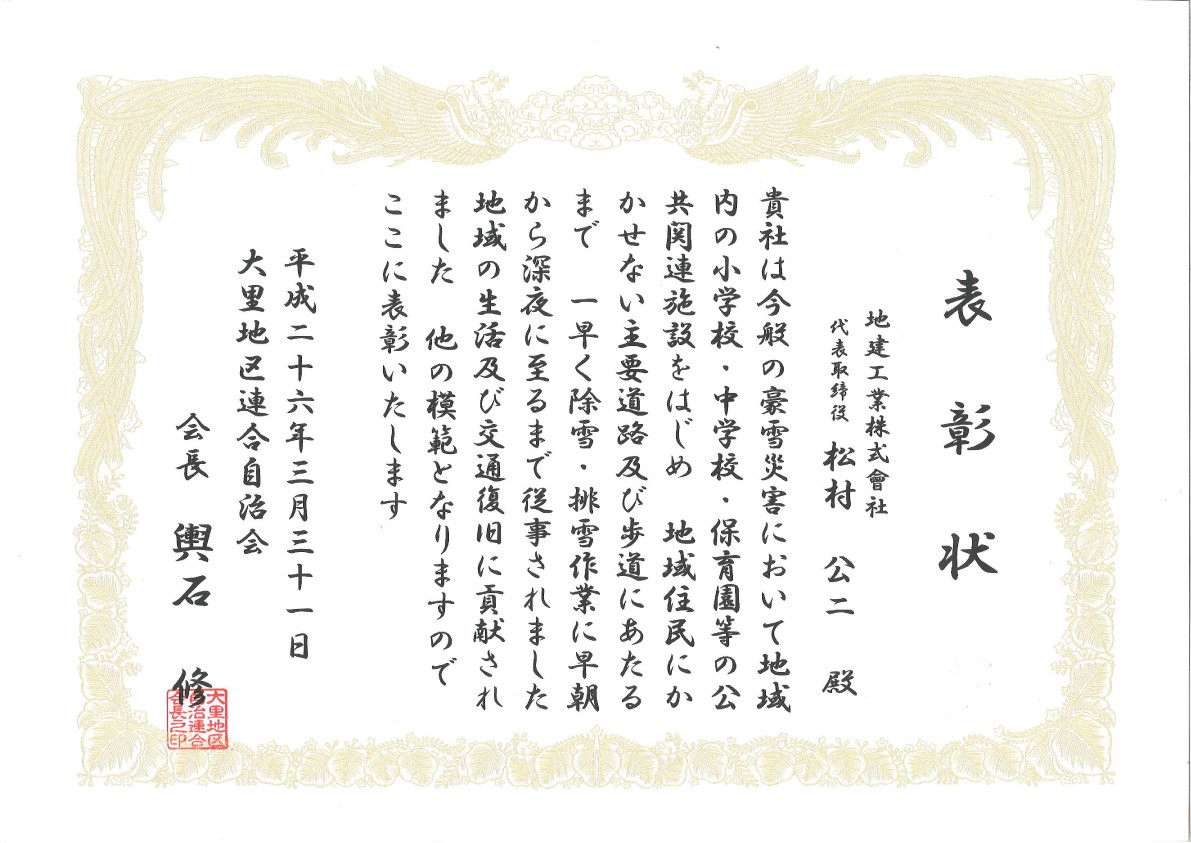 表彰状
地建工業株式會社
代表取締役 松村 公二 殿
貴社は今般の豪雪災害において地域
内の小学校・中学校・保育園等の公
共関連施設をはじめ 地域住民にか
かせない主要道路及び歩道にあたる
まで 一早く除雪・排雪作業に早朝
から深夜に至るまで従事されました
地域の生活及び交通復旧に貢献され
ました 他の模範となりますので
ここに表彰いたします
平成二十六年三月三十一日
大里地区連合自治会
会長 輿石 修
大里地区
自治連合
会長之印